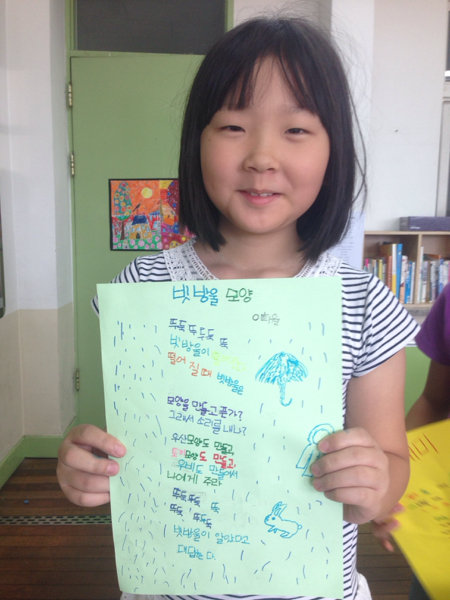 빗방울 모양
이화윤
뚜둑 뚜두둑 뚝
빗방울이
떨어 질 때 빗방울은
모양을 만들고 픈가?
그래서 소리를 내나?
우산모양도 만들고
토끼모양도 만들고
우비도 만들어서
나에게 주라
뚜둑뚜둑 뚝
뚜둑 뚜두둑
빗방울이 알았다고
대답한다.